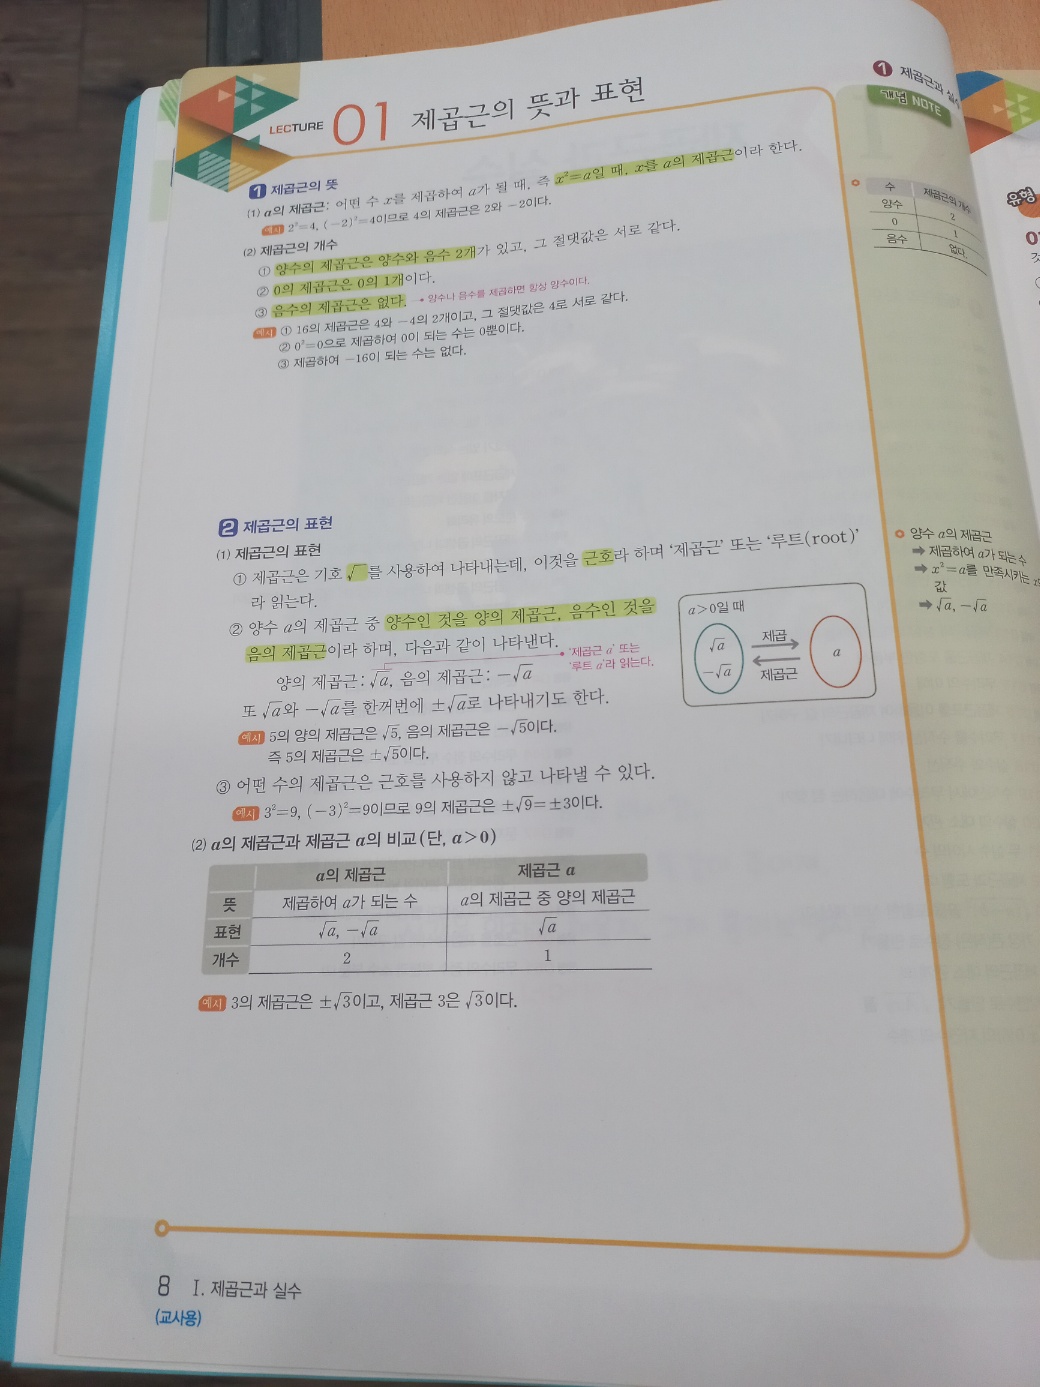 LECTURE 01 제곱근의 뜻과 표현
1 제곱근의 뜻
(1) a의 제곱근: 어떤 수 x를 제곱하여 a가 될 때, 즉 x²=a일 때, x를 a의 제곱근이라 한다.
예시 2²=4, (-2)²=4이므로 4의 제곱근은 2와 -2이다.
(2) 제곱근의 개수
① 양수의 제곱근은 양수와 음수 2개가 있고, 그 절댓값은 서로 같다.
② 0의 제곱근은 0의 1개이다.
③ 음수의 제곱근은 없다. → 양수나 음수를 제곱하면 항상 양수이다.
예시 ① 16의 제곱근은 4와 -4의 2개이고, 그 절댓값은 4로 서로 같다.
② 0²=0으로 제곱하여 0이 되는 수는 0뿐이다.
③ 제곱하여 -16이 되는 수는 없다.
2 제곱근의 표현
(1) 제곱근의 표현
① 제곱근은 기호 √ 를 사용하여 나타내는데, 이것을 근호라 하며 ‘제곱근’ 또는 ‘루트(root)’
라 읽는다.
② 양수 a의 제곱근 중 양수인 것을 양의 제곱근, 음수인 것을
음의 제곱근이라 하며, 다음과 같이 나타낸다.
‘제곱근 a’ 또는
‘루트 a’라 읽는다.
양의 제곱근: √a, 음의 제곱근: -√a
또 √a와 -√a를 한꺼번에 ±√a로 나타내기도 한다.
예시 5의 양의 제곱근은 √5, 음의 제곱근은 -√5이다.
즉 5의 제곱근은 ±√5이다.
a>0일 때
√a
-√a
제곱
제곱근
a
③ 어떤 수의 제곱근은 근호를 사용하지 않고 나타낼 수 있다.
예시 3²=9, (-3)²=9이므로 9의 제곱근은 ±√9=±3이다.
(2) a의 제곱근과 제곱근 a의 비교(단, a>0)
a의 제곱근 제곱근 a
뜻 제곱하여 a가 되는 수 a의 제곱근 중 양의 제곱근
표현 √a, -√a √a
개수 2 1
예시 3의 제곱근은 ±√3이고, 제곱근 3은 √3이다.
8 I. 제곱근과 실수
(교사용)
1 제곱근과 실수
개념 NOTE
수 제곱근의 개수
양수 2
0 1
음수 없다.
양수 a의 제곱근
➡ 제곱하여 a가 되는 수
➡ x²=a를 만족시키는 x의
값
➡ √a, -√a
유형